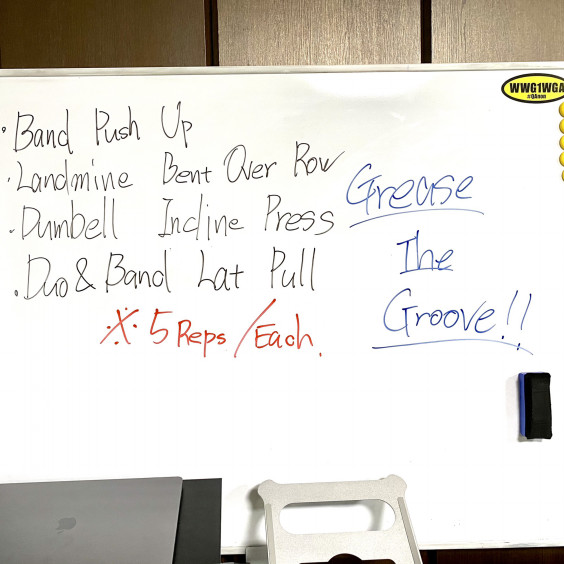 WWG1WGA
#QAnon
· Band Push Up
· Landmine Bent Over Row
· Dumbell Incline Press
· Duo & Band Lat Pull
※ 5 Reps / Each.
Grease
The
Groove!!